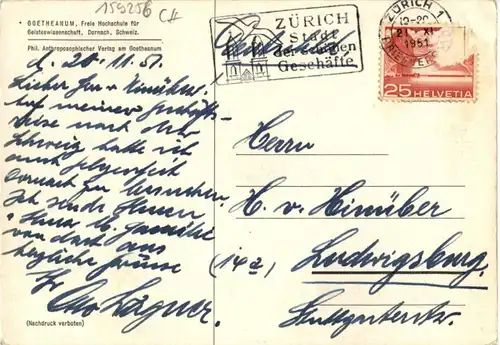 159256 C#
GOETHEANUM, Freie Hochschule für
Geisteswissenschaft, Dornach, Schweiz.
Phil. Anthroposophischer Verlag am Goetheanum
d. 20.11.51.
Lieber Herr v. Hinüber!
Auf meiner Geschäfts-
reise nach der
Schweiz hatte ich
auch Gelegenheit
Dornach zu besuchen.
Ich sende Ihnen
u. Ihrer w. Familie
von dort aus
herzliche Grüsse
Ihr
Otto Lägner.
(Nachdruck verboten)
ZÜRICH
Stadt
der guten
Geschäfte
ZÜRICH 1
21. XI.
1951
25 HELVETIA
Herrn
H. v. Hinüber
(14a) Ludwigsburg.
Stuttgarterstr.